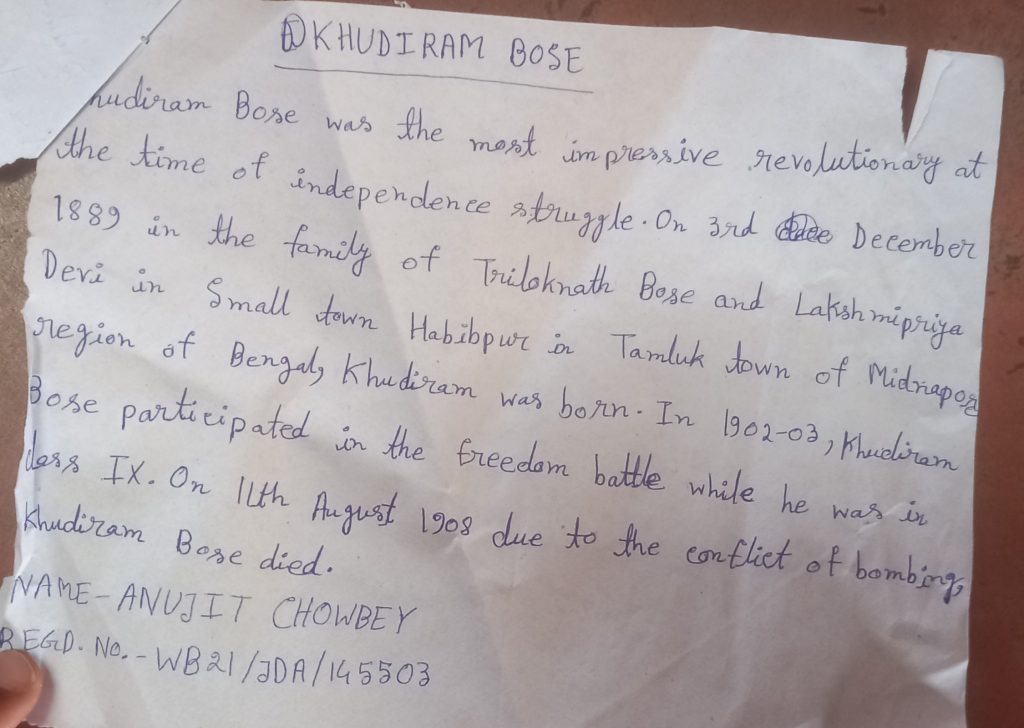 ① KHUDIRAM BOSE
hudiram Bose was the most impressive revolutionary at
the time of independence struggle. On 3rd December
1889 in the family of Triloknath Bose and Lakshmipriya
Devi in Small town Habibpur in Tamluk town of Midnapore
region of Bengal, Khudiram was born. In 1902-03, Khudiram
Bose participated in the freedom battle while he was in
lass IX. On 11th August 1908 due to the conflict of bombing,
Khudiram Bose died.
NAME - ANUJIT CHOWBEY
REGD. NO. - WB21/JDA/145503